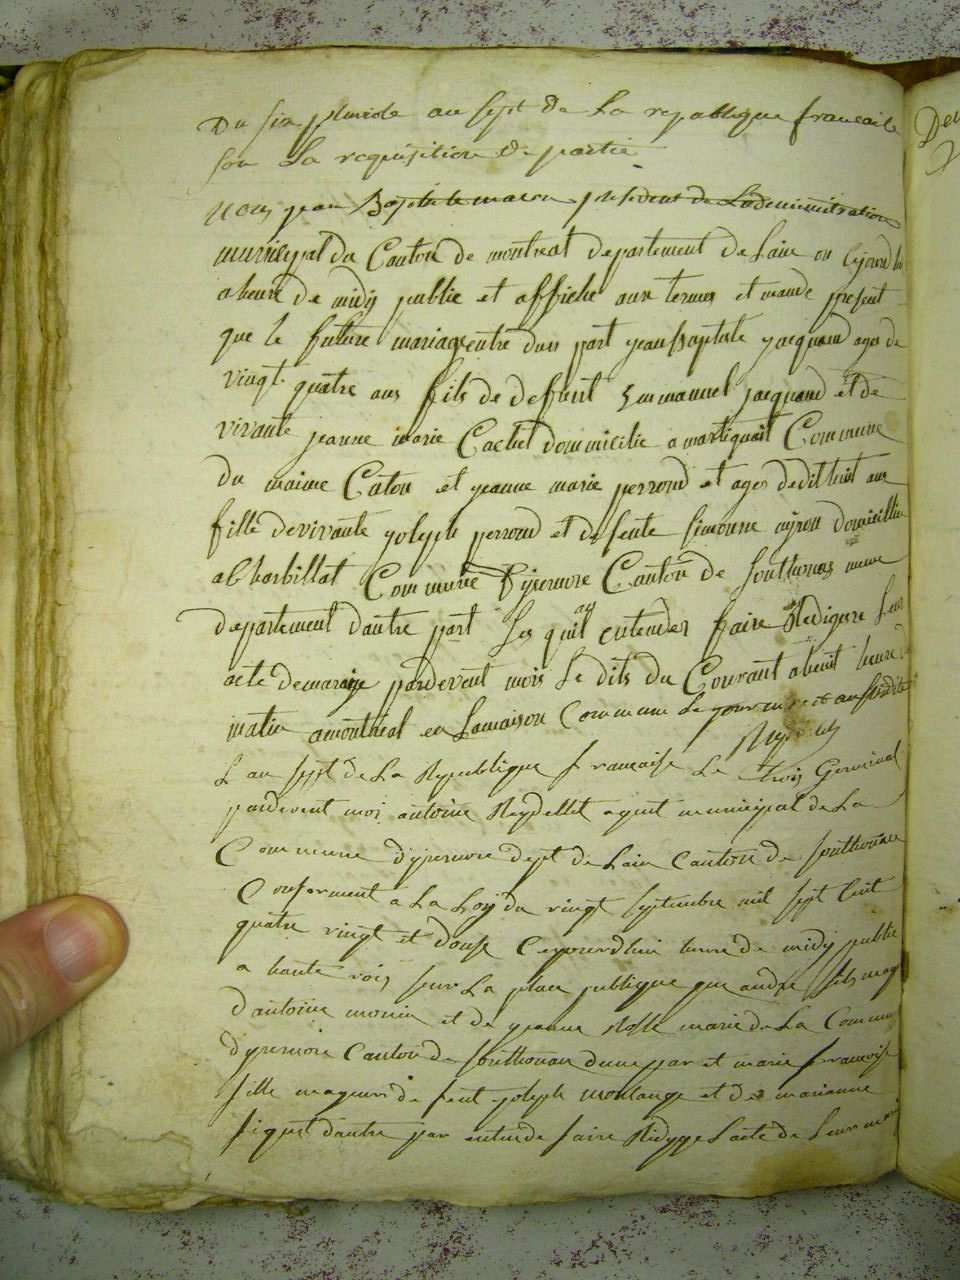 Du six pluviose an sept de La republique francaise
sou La requisition de partie
nous jean Baptiste maron president de Lademinitration
municipal du Canton de montreal departement de Lain on cejourdhu
a heure de midy publie et affiche aux termes et mande present
que le future mariage entre dun part jean Baptiste jacquand ages de
vingt quatre ans fils de defient Emmanuel jacquand et de
vivante jeanne marie Cachet dommicilie a martignait Commune
du maime Caton et jeanne marie perrond et ages dedithuit ans
fille devivante joseph perrond et defente simonne domicillie
a Charbillat Commune Dijsernore Canton de sonthonas meme
departement dautre part Les quil entender faire Redigere Leur
acte demariage pardevent mois Le dits du Courant a huit heure
matin amontreal en Lamaison Commune Le jour
Reydelet
L an sept de La Republique francaise Le trois Germinal
pardevent moi antoine Reydellet agent municipal de La
Commune dysernore dept de Lain Canton de sonthonax
Conforment a La Loy du vingt septembre mil sept Cent
quatre vingt et douse Cejourdhui heure de midy publie
a haute vois sur La place publique que andre fils mag
dantoine monin et de jeanne Rosse marie de La Commun
dysernore Canton de sonthonax dune par et marie francoise
fille mageure de feut joseph moslange et de marianne
figuet dautre par entende faire Ridyge Lacte de Leur mari